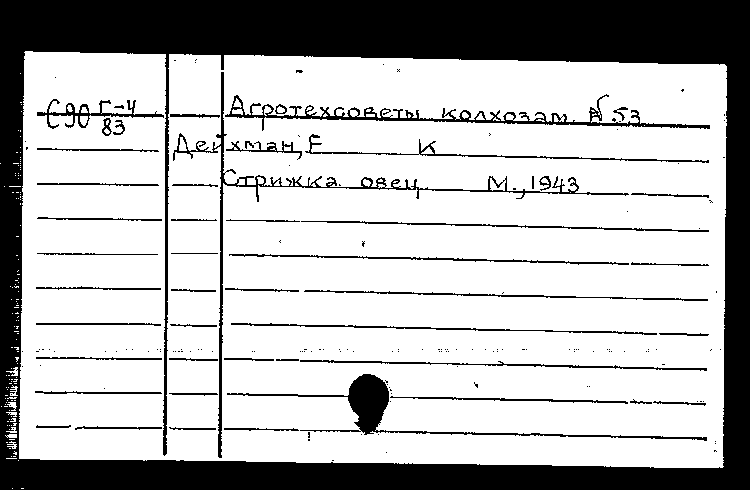 С90 Г-4/83 Агротехсоветы колхозам. В 53
Дейхман, Е К
Стрижка овец М., 1943